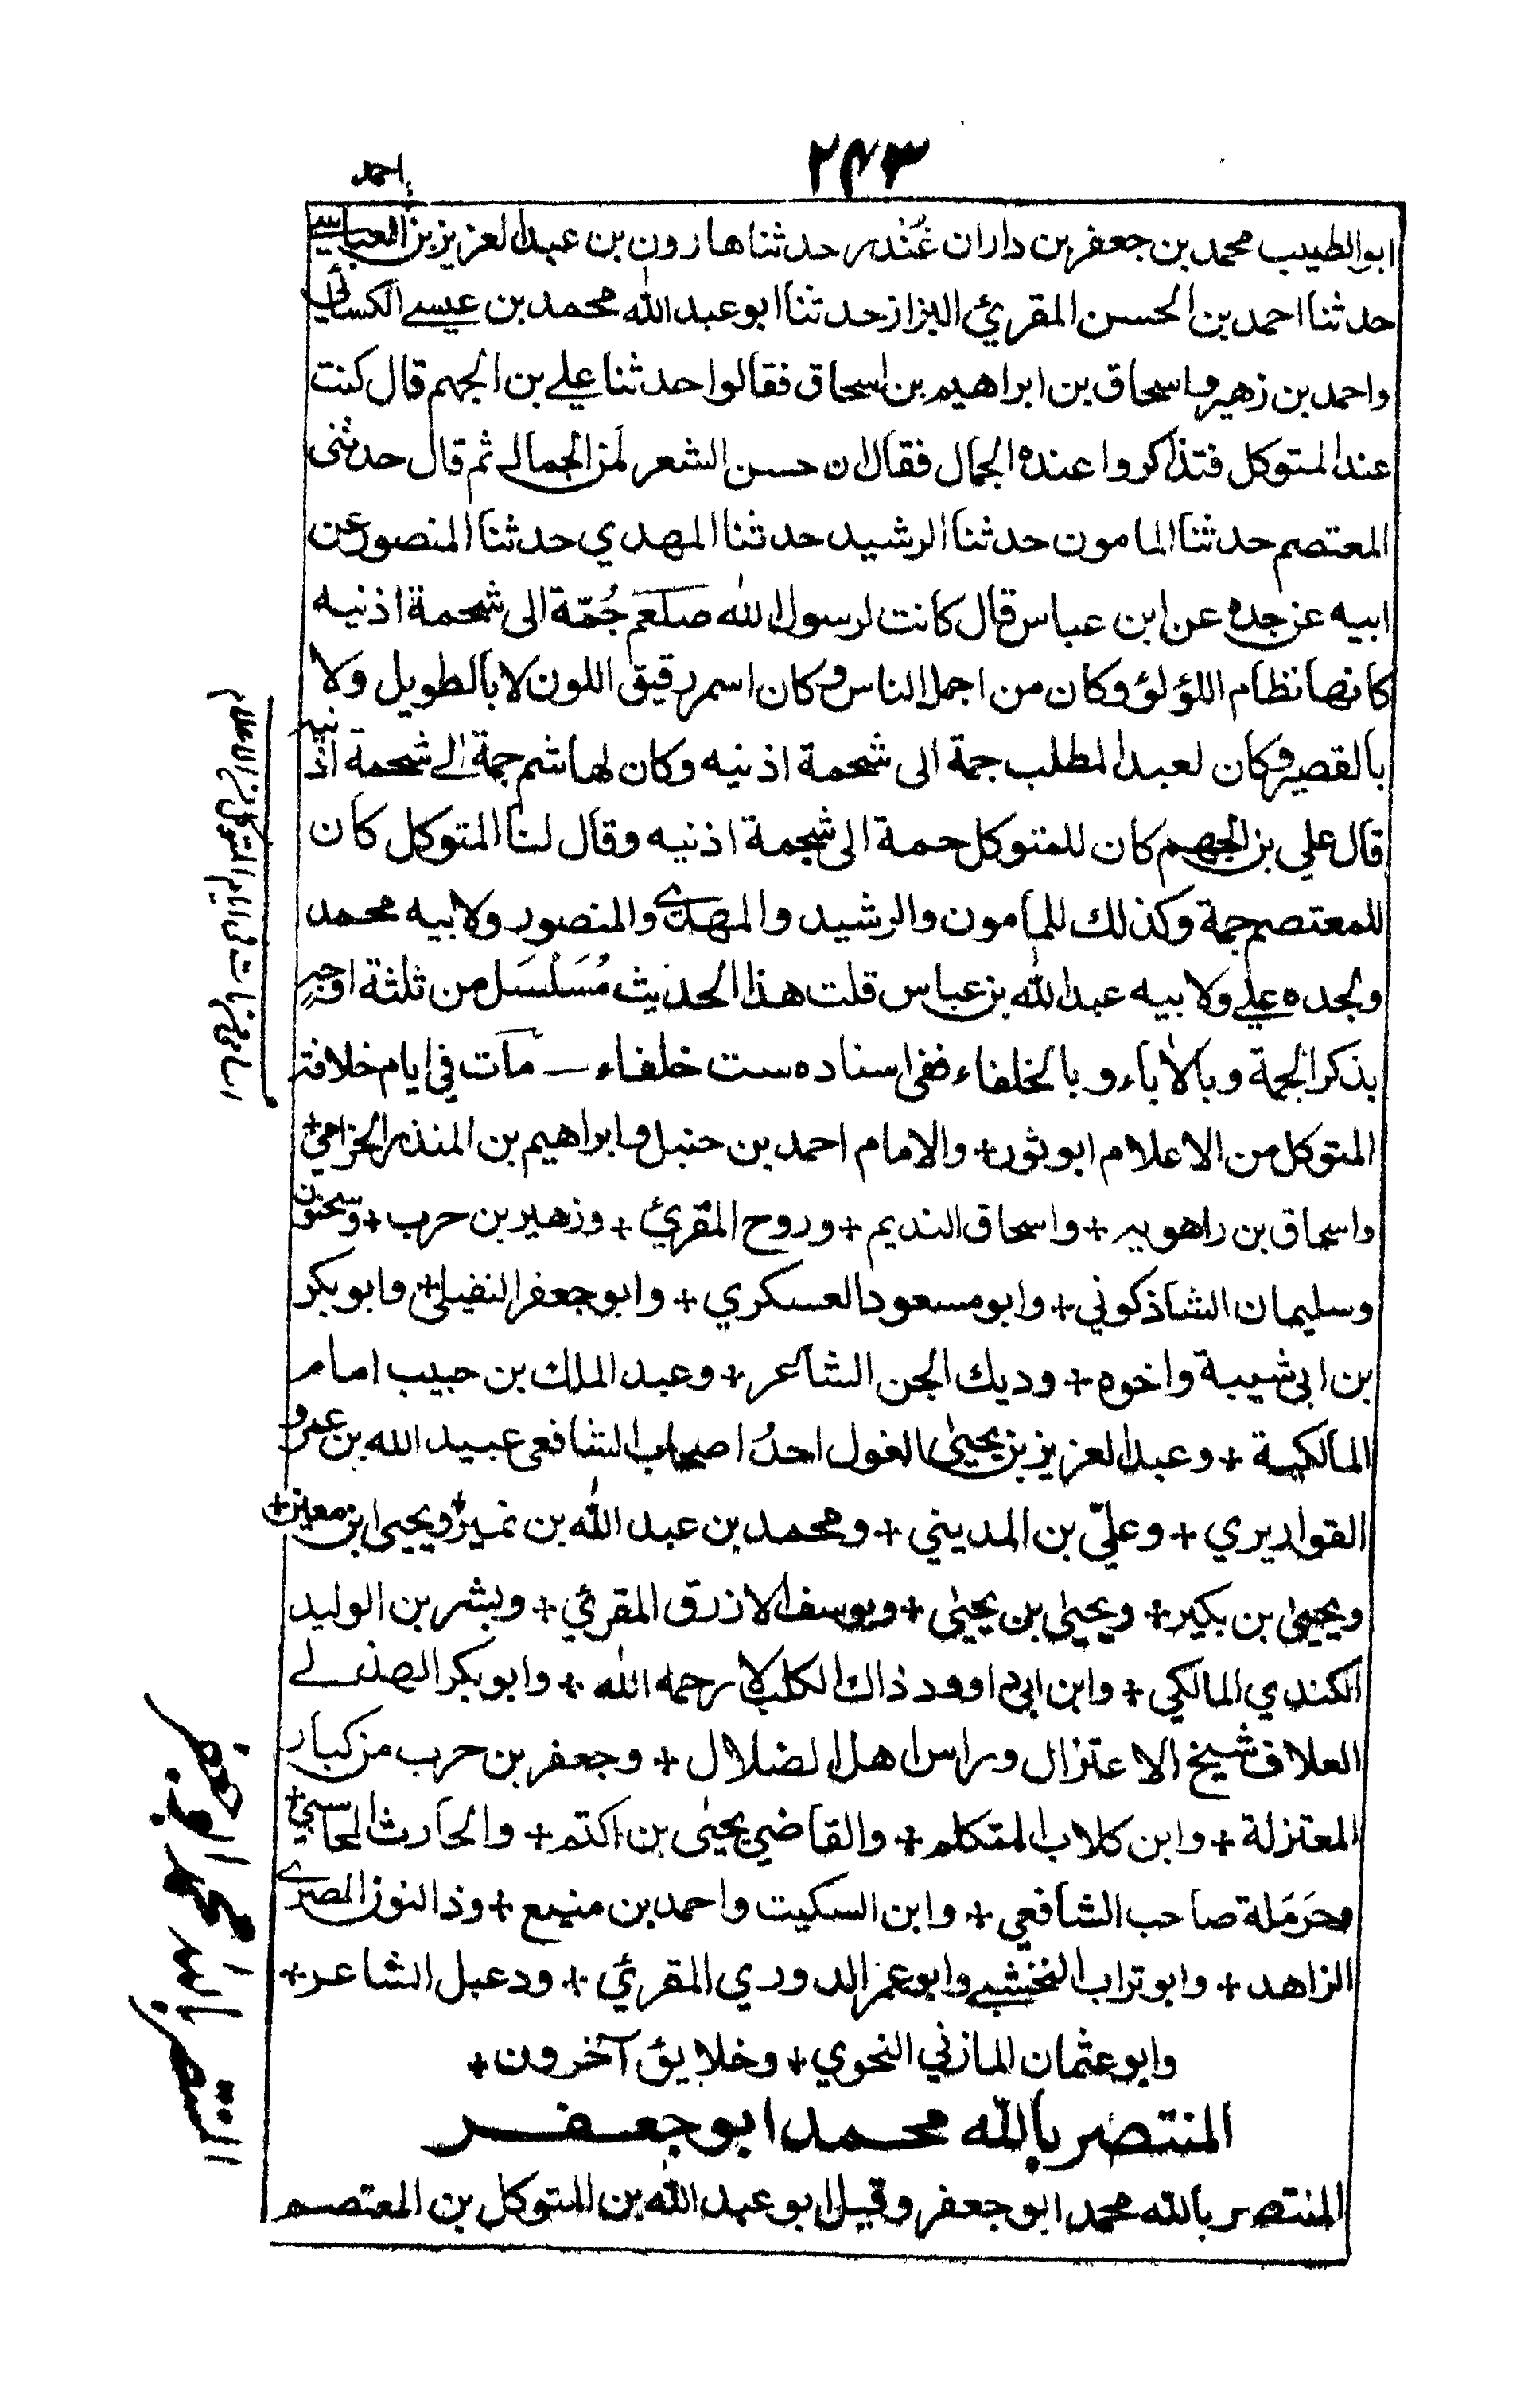 ٢٤٣
احمد
ابو الطيب محمد بن جعفر بن داران غُندر حدثنا هارون بن عبد العزيز بن العباسي
حدثنا احمد بن الحسن المقرئ البزاز حدثنا ابو عبد الله محمد بن عيسى الكسائي
واحمد بن زهير واسحاق بن ابراهيم بن اسحاق فقالوا حدثنا علي بن الجهم قال كنت
عند المتوكل فتذاكروا عنده الجمال فقال ان حسن الشعر لمن الجمال ثم قال حدثنى
المعتصم حدثنا المامون حدثنا الرشيد حدثنا المهدي حدثنا المنصور عن
ابيه عن جده عن ابن عباس قال كانت لرسول الله صلعم جُمّة الى شحمة اذنيه
كانها نظام اللؤلؤ وكان من اجمل الناس وكان اسمر رقيق اللون لا بالطويل ولا
بالقصير وكان لعبد المطلب جمة الى شحمة اذنيه وكان لهاشم جمة الى شحمة اذنيه
قال علي بن الجهم كان للمتوكل جمة الى شحمة اذنيه وقال لنا المتوكل كان
للمعتصم جمة وكذلك للمامون والرشيد والمهدي والمنصور ولابيه محمد
ولجده علي ولابيه عبد الله بن عباس قلت هذا الحديث مُسَلْسَل من ثلثة اوجه
بذكر الجمة وبالاباء وبالخلفاء ففى اسناده ست خلفاء — مات في ايام خلافة
المتوكل من الاعلام ابو ثور + والامام احمد بن حنبل وابراهيم بن المنذر الحزامي +
واسحاق بن راهويه + واسحاق النديم + وروح المقرئ + وزهير بن حرب + وسحنون
وسليمان الشاذكوني + وابو مسعود العسكري + وابو جعفر النفيلي + وابو بكر
بن ابى شيبة واخوه + وديك الجن الشاعر + وعبد الملك بن حبيب امام
المالكية + وعبد العزيز بن يحيى الغول احدُ اصحاب الشافعى عبيد الله بن عمرو
القواريري + وعليّ بن المديني + ومحمد بن عبد الله بن نمير + ويحيى ابن معين +
ويحيى بن بكير + ويحيى بن يحيى + ويوسف الازرق المقرئ + وبشر بن الوليد
الكندي المالكي + وابن ابي داوود ذاك الكلب لا رحمه الله + وابو بكر الهذلي
العلاف شيخ الاعتزال وراس اهل الضلال + وجعفر بن حرب من كبار
المعتزلة + وابن كلاب المتكلم + والقاضي يحيى بن اكتم + والحارث المحاسبي +
وحَرمَلة صاحب الشافعي + وابن السكيت واحمد بن منيع + وذا النون المصري
الزاهد + وابو تراب النخشبي وابو عمر الدوري المقرئ + ودعبل الشاعر +
وابو عثمان المازني النحوي + وخلايق آخرون +
المنتصر بالله محمد ابو جعفر
المنتصر بالله محمد ابو جعفر وقيل ابو عبد الله بن المتوكل بن المعتصم
المنتصر بالله محمد ابو جعفر